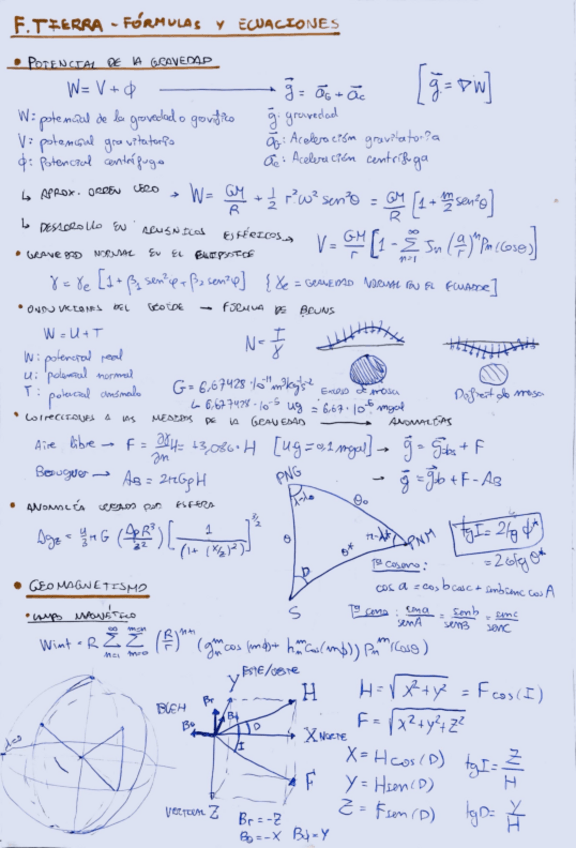 F. TIERRA - FÓRMULAS Y ECUACIONES
• POTENCIAL DE LA GRAVEDAD
W = V + ϕ → g⃗ = a⃗G + a⃗c [g⃗ = ∇W]
W: potencial de la gravedad o gravífico
g⃗: gravedad
V: potencial gravitatorio
a⃗G: Aceleración gravitatoria
ϕ: Potencial centrífugo
a⃗c: Aceleración centrífuga
↳ APROX. ORDEN CERO → W = GM/R + 1/2 r²ω² sen²θ = GM/R [1 + m/2 sen²θ]
↳ DESARROLLO EN ARMÓNICOS ESFÉRICOS → V = GM/r [1 - Σ n=1 ∞ Jn (a/r)ⁿ Pn (cosθ)]
• GRAVEDAD NORMAL EN EL ELIPSOIDE
γ = γe [1 + β1 sen²φ + β2 sen²φ] {γe = GRAVEDAD NORMAL EN EL ECUADOR]
• ONDULACIONES DEL GEOIDE → FÓRMULA DE BRUNS
W = U + T
N = T/γ
W: potencial real
U: potencial normal
T: potencial anómalo
Exceso de masa
Déficit de masa
G = 6,67428·10⁻¹¹ m³kg⁻¹s⁻²
↳ 6,67428·10⁻⁵ ug = 6,67·10⁻⁶ mgal
• CORRECCIONES A LAS MEDIDAS DE LA GRAVEDAD → ANOMALÍAS
Aire libre → F = ∂γ/∂n H = +3,086·H [ug = 0,1 mgal] → g⃗ = g⃗obs + F
Bouguer → AB = 2πGρH → g⃗ = g⃗b + F - AB
• ANOMALÍA CREADA POR ESFERA
Δgz = 4/3 π G (ΔρR³/z²) [1/(1+(x/z)²)]^3/2
PNG
θ0
θ
θ*
D
PNM
S
tg I = 2/tg ϕ*
= 2 ctg θ*
Tª coseno:
cos a = cos b cos c + sen b sen c cos A
Tª seno: sen a/sen A = sen b/sen B = sen c/sen C
• GEOMAGNETISMO
• CAMPO MAGNÉTICO
Wint = R Σ n=1 ∞ Σ m=0 m=n (R/r)ⁿ⁺¹ (gₙᵐ cos (mϕ) + hₙᵐ cos (mϕ)) Pₙᵐ (cosθ)
Y ESTE/OESTE
Br
Bθ
Bϕ
H
D
I
X NORTE
F
VERTICAL Z
Br = -Z
Bθ = -X Bϕ = Y
H = √(X² + Y²) = F cos (I)
F = √(X² + Y² + Z²)
X = H cos (D)
tg I = Z/H
Y = H sen (D)
Z = F sen (D)
tg D = Y/H